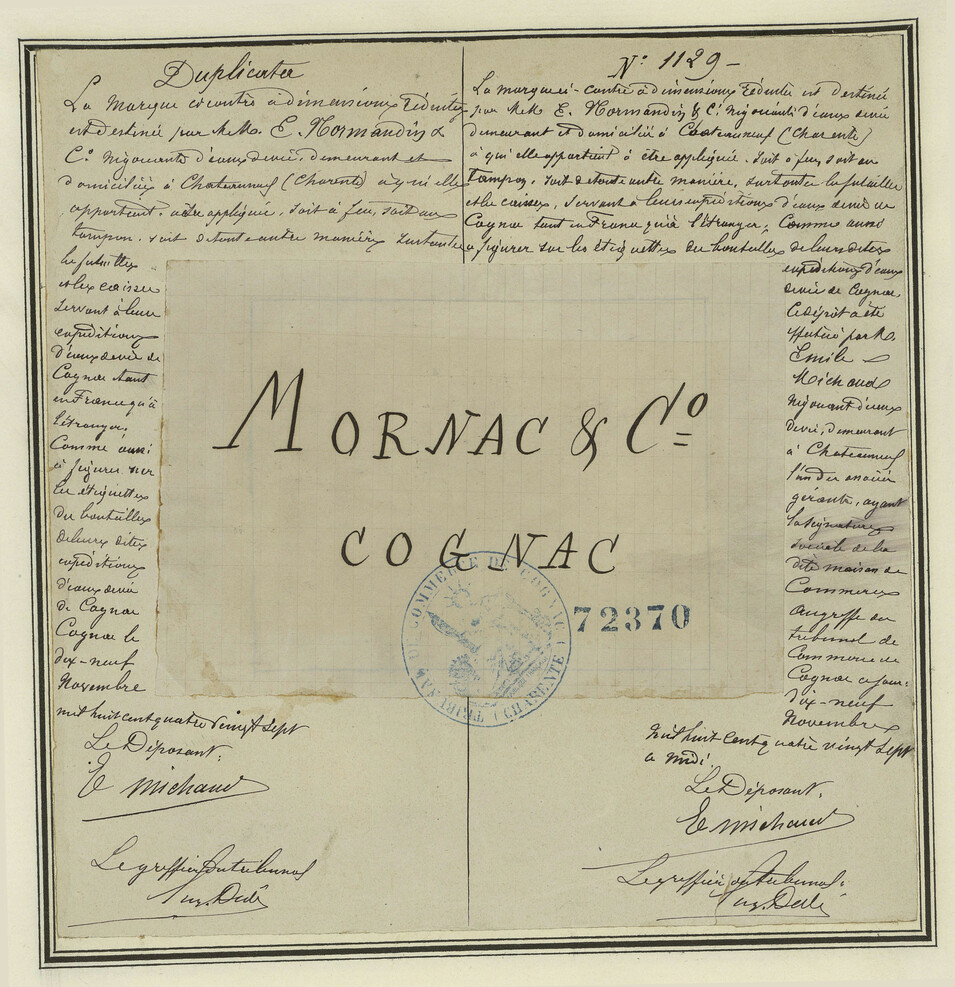 Duplicata
La marque ci contre à dimensions réduites
est destinée par M.M. E. Normandin &
Cº négociants d'eaux devie, demeurant et
domiciliés à Chateauneuf (Charente) à qui elle
appartient, à être appliquée, soit à feu, soit au
tampon, soit de toute autre manière sur toutes
les futailles
et les caisses
servant à leurs
expéditions
d'eaux devie de
Cognac tant
en France qu'à
l'étranger,
Comme aussi
à figurer sur
les étiquettes
des bouteilles
de leurs dites
expéditions
d'eaux devie
de Cognac
Cognac le
dix-neuf
Novembre
mil huit cent quatre vingt sept
Le Déposant:
E Michaud
Le greffier du tribunal
Aug. Dedé
Nº 1129 -
La marque ci-contre à dimensions réduites est destinée
par M.M. E. Normandin & Cº négociants d'eaux devie
demeurant et domiciliés à Chateauneuf (Charente)
à qui elle appartient à être appliquée, soit à feu, soit au
tampon, soit de toute autre manière, sur toutes les futailles
et les caisses, servant à leurs expéditions d'eaux devie de
Cognac tant en France qu'à l'étranger; Comme aussi
à figurer sur les étiquettes des bouteilles de leurs dites
expéditions d'eaux
devie de Cognac
Ce dépôt a été
effectué par M.
Emile
Michaud
négociant d'eaux
devie, demeurant
à Chateauneuf
l'un des associés
gérants, ayant
la signature
sociale de la
dite maison de
Commerce
au greffe du
tribunal de
Commerce de
Cognac ce jour:
dix-neuf
Novembre
mil huit cent quatre vingt sept
à midi
Le Déposant,
E Michaud
Le greffier du tribunal:
Aug. Dedé
MORNAC & Cº
COGNAC
TRIBUNAL DE COMMERCE DE COGNAC (CHARENTE)
72370